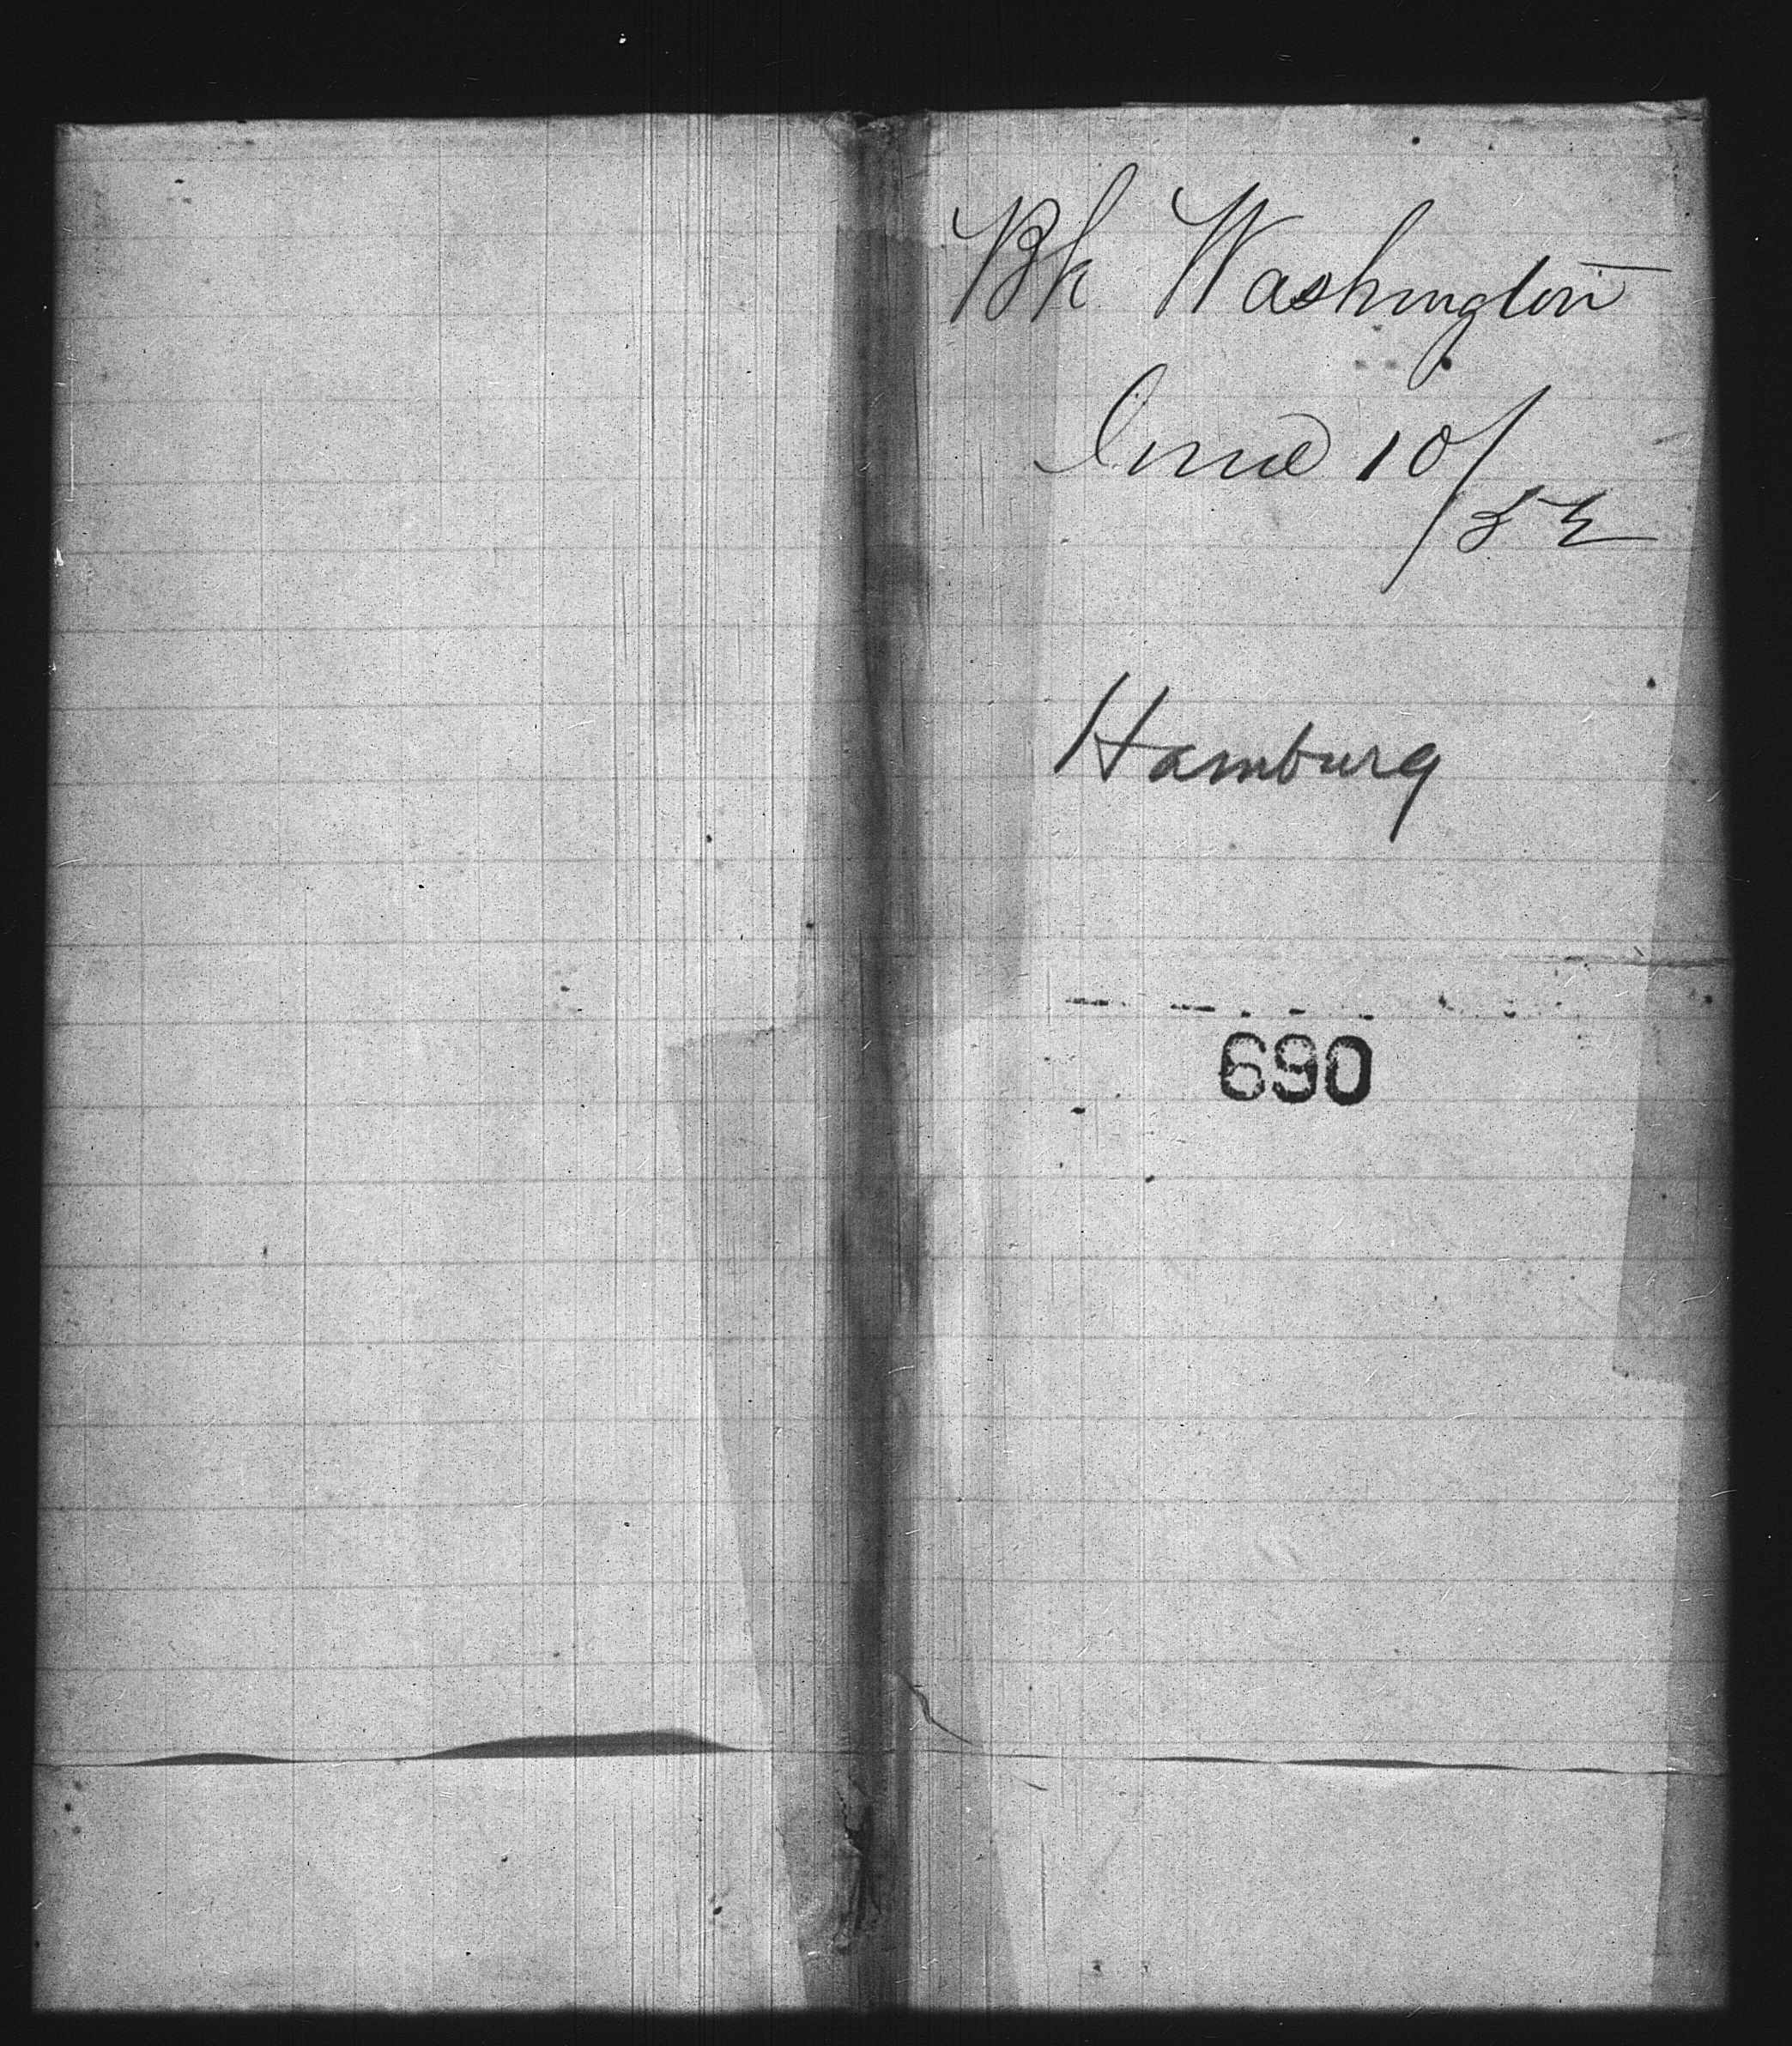 Bk Washington
June 10/52
Hamburg
690